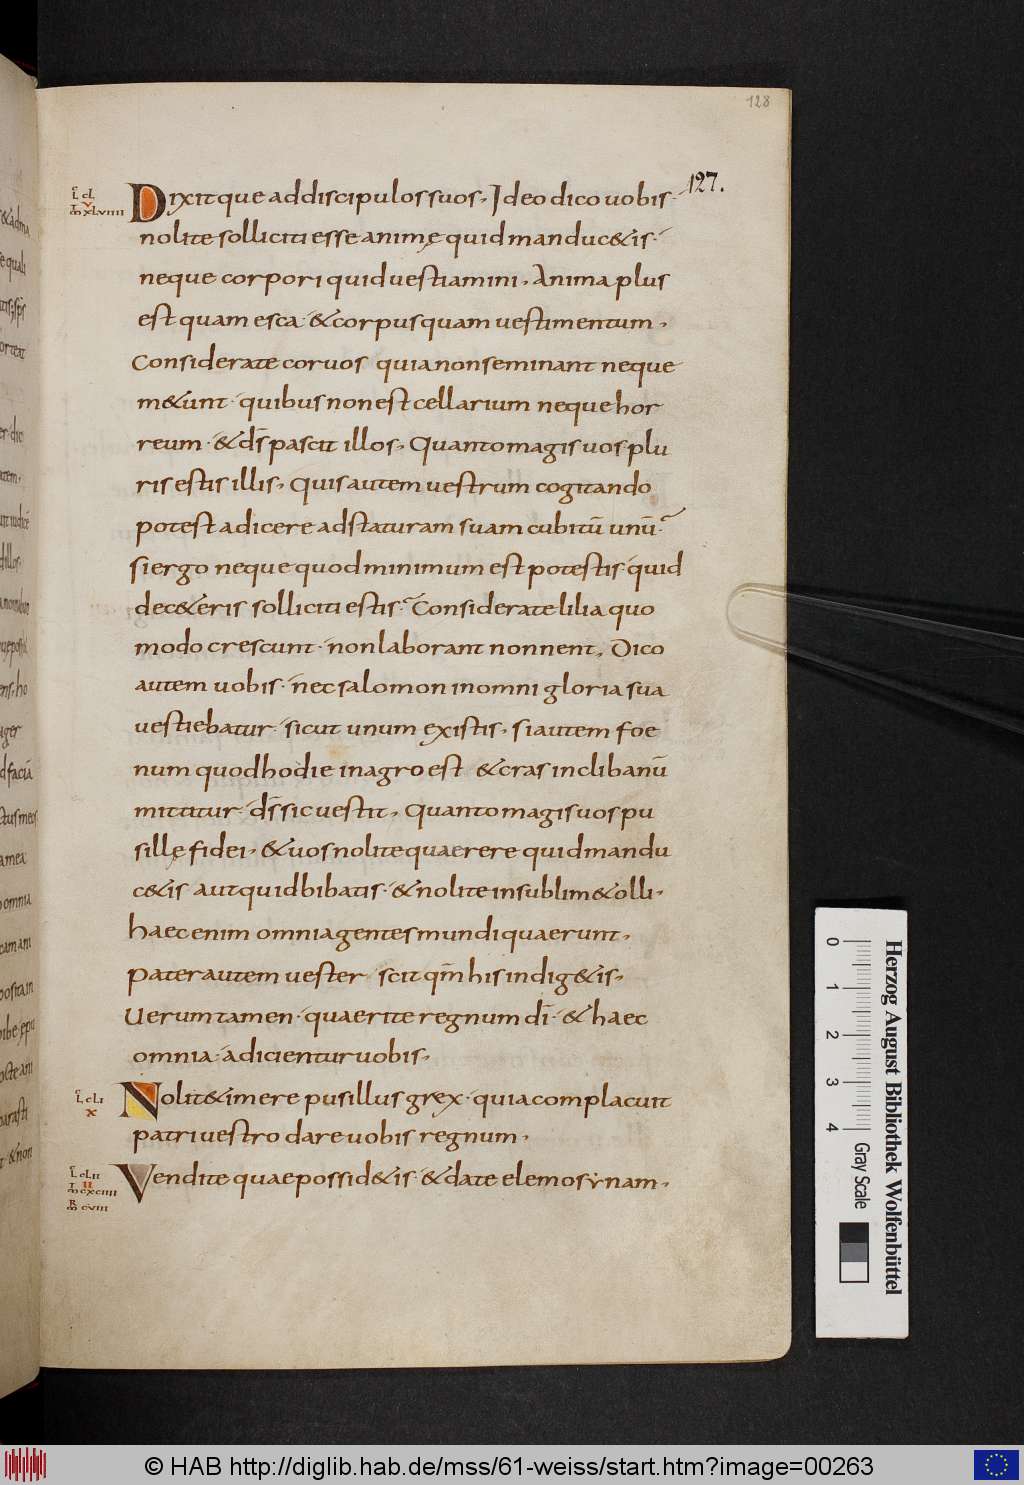 128
127.
L cL
V
m xLviiii
Dixitque ad discipulos suos, Ideo dico uobis·
nolite solliciti esse animę quid manduc&is·
neque corpori quid uestiamini, Anima plus
est quam esca· & corpus quam uestimentum,
Considerate coruos quia non seminant neque
m&unt· quibus non est cellarium neque hor
reum· & d̄s pascit illos, Quanto magis uos plu
ris estis illis, Quis autem uestrum cogitando
potest adicere ad staturam suam cubitū unū·
si ergo neque quod minimum est potestis· quid
dec&eris solliciti estis· Considerate lilia quo
modo crescunt· non laborant non nent, Dico
autem uobis· nec salomon in omni gloria sua
uestiebatur· sicut unum ex istis, si autem foe
num quod hodie in agro est & cras in clibanū
mittitur· d̄s sic uestit, Quanto magis uos pu
sillę fidei, & uos nolite quaerere quid mandu
c&is aut quid bibatis· & nolite in sublim& olli·
haec enim omnia gentes mundi quaerunt,
pater autem uester scit qm̄ his indig&is,
Uerum tamen· quaerite regnum dī· & haec
omnia· adicientur uobis,
L cLi
x
Nolit&imere pusillus grex· quia complacuit
patri uestro dare uobis regnum,
L cLii
ii
m cxciiii
R
m cviii
Vendite quae possid&is· & date elemosynam,
Herzog August Bibliothek Wolfenbüttel
0 1 2 3 4
Gray Scale
© HAB http://diglib.hab.de/mss/61-weiss/start.htm?image=00263